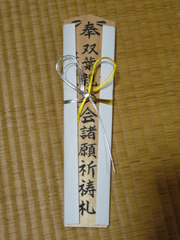 奉双葉龍会諸願祈祷札